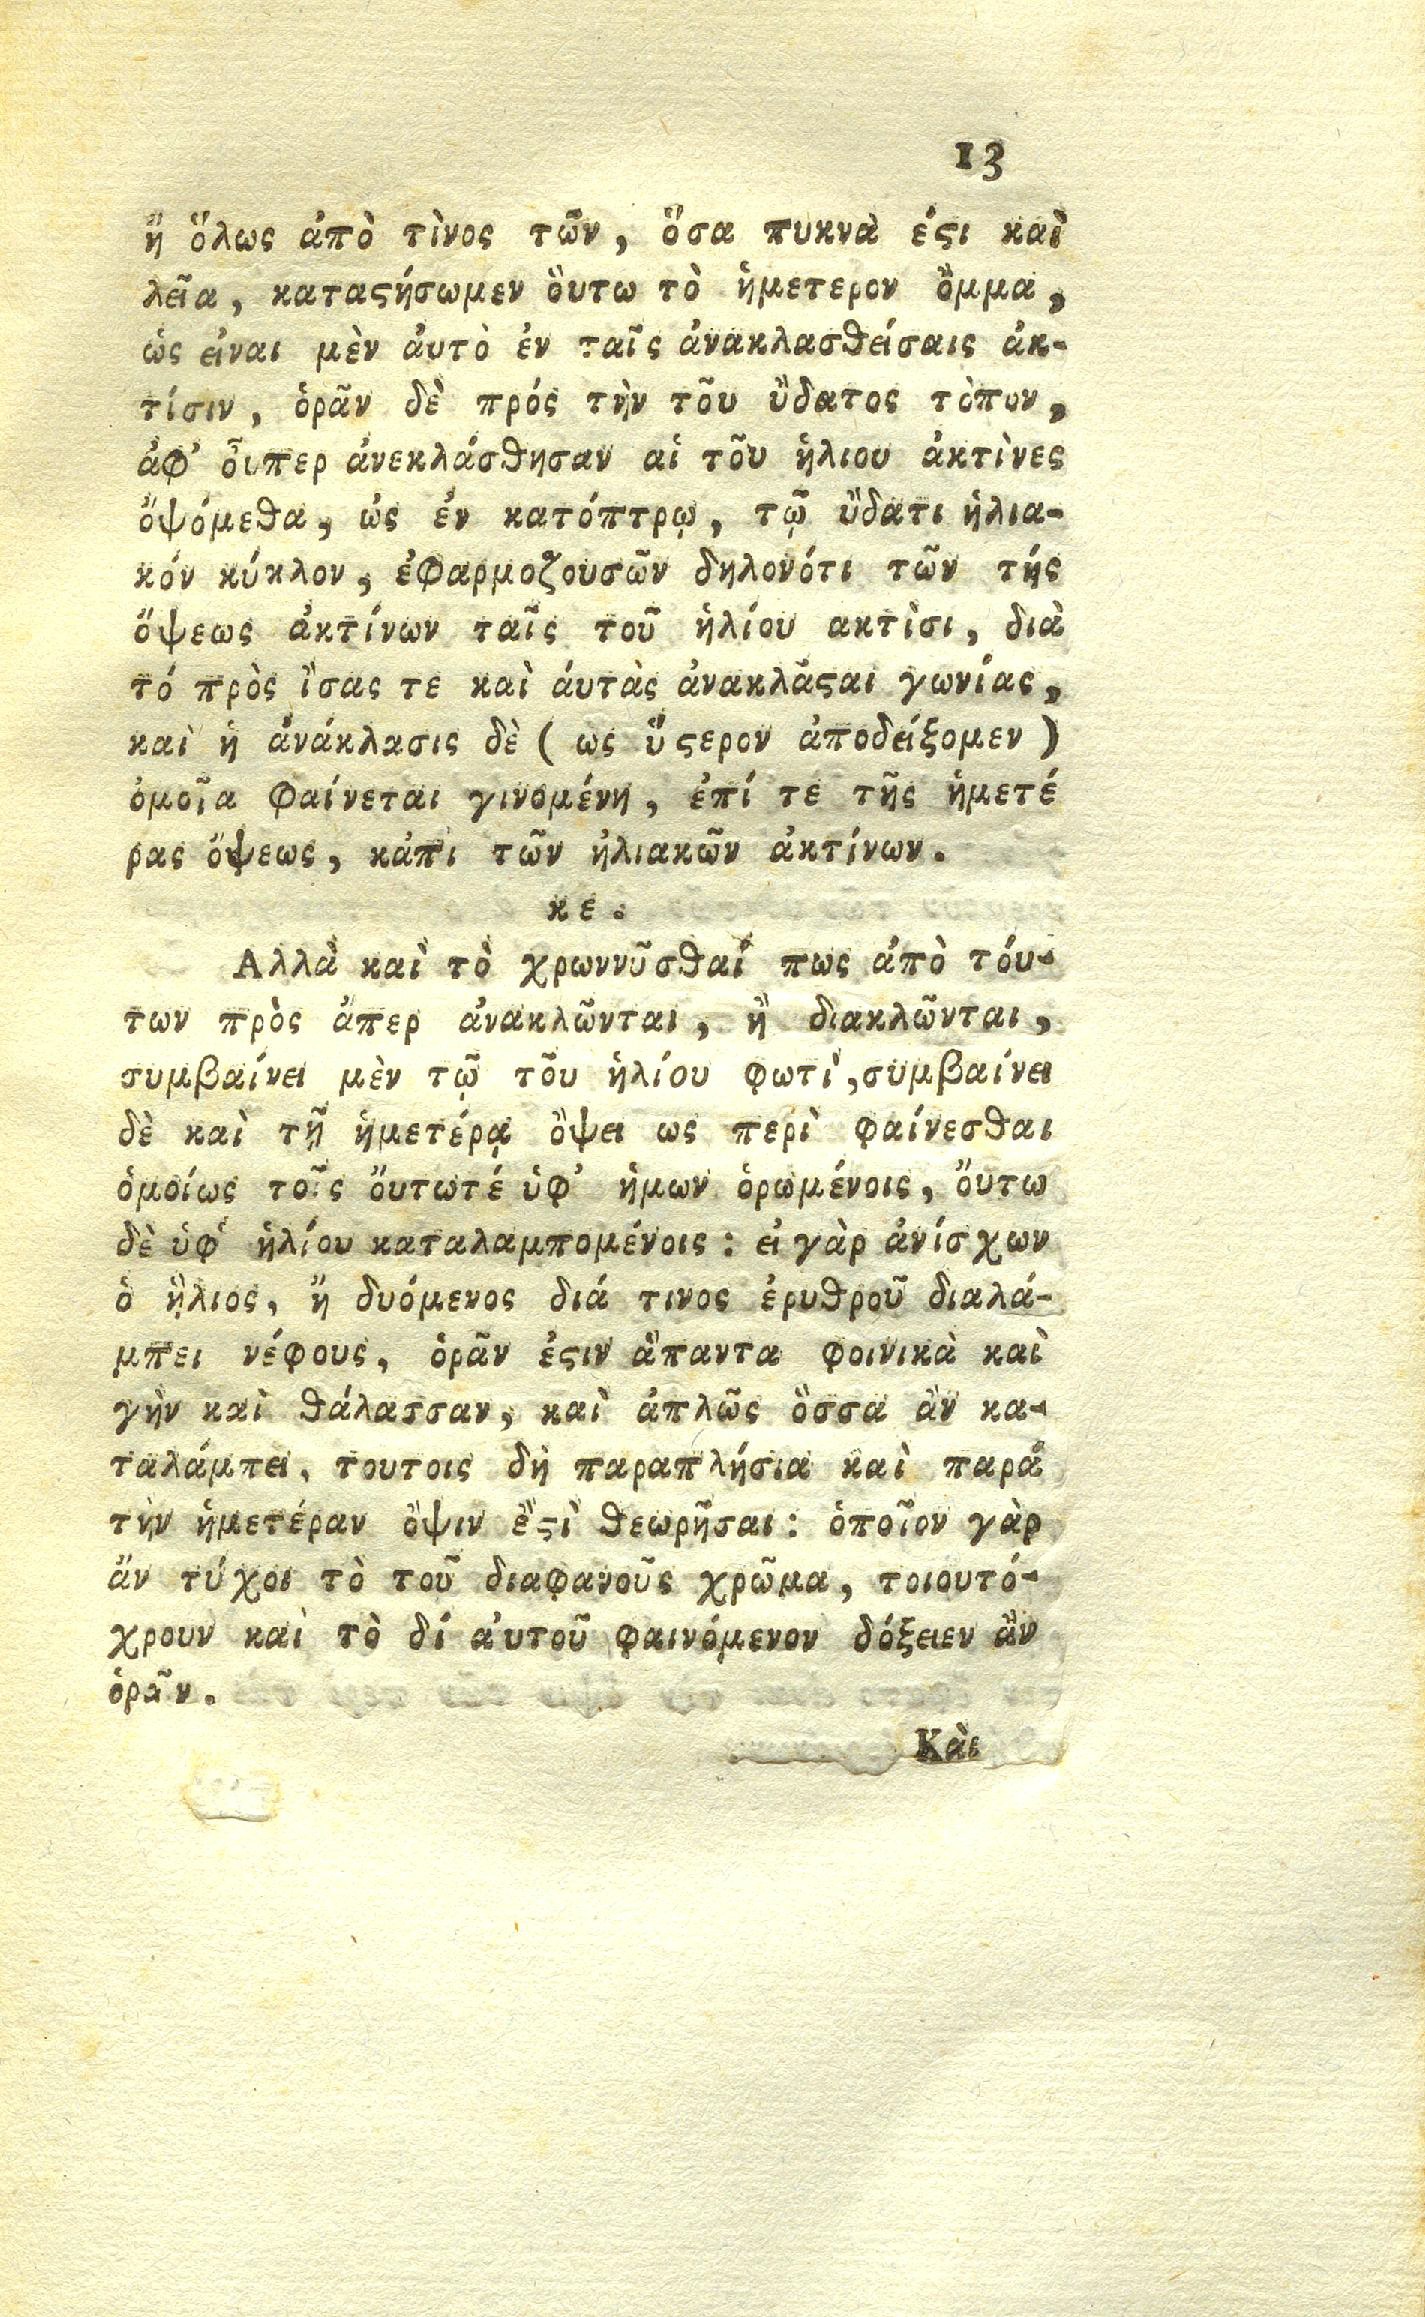 13
ἢ ὅλως ἀπὸ τὶνος τῶν, ὅσα πυκνὰ ἐϛι καὶ
λεῖα, καταϛήσωμεν ὂυτω τὸ ἡμετερον ὂμμα,
ὡς ἐιναι μὲν ἀυτὸ ἐν ταῖς ἀνακλασθείσαις ἀκ-
τίσιν, ὁρᾶν δὲ πρός τὴν τοῦ ὓδατος τὸπον,
ἀφ' οὗπερ ἀνεκλάσθησαν αἱ τοῦ ἡλιου ἀκτὶνες
ὄψόμεθα, ὡς ἐν κατόπτρῳ, τῷ ὓδατι ἡλια-
κόν κύκλον, ἐφαρμοζουσῶν δηλονότι τῶν τής
ὄψεως ἀκτίνων ταῖς τοῦ ἡλίου ακτὶσι, διὰ
τό πρὸς ἲσας τε καὶ ἀυτὰς ἀνακλᾶϛαι γωνίας,
καὶ ἡ ἀνάκλασις δὲ (ὡς ὕϛερον ἀποδείξομεν)
ὁμοῖα φαίνεται γινομένη, ἐπί τε τῆς ἡμετέ
ρας ὄψεως, κἀπὶ τῶν ἡλιακῶν ἀκτίνων.
κε.
Αλλὰ καὶ τὸ χρωννῦσθαί πως ἀπὸ τόυ-
των πρὸς ἅπερ ἀνακλῶνται, ἢ διακλῶνται,
συμβαίνει μὲν τῷ τοῦ ἡλίου φωτὶ, συμβαίνει
δὲ καὶ τῇ ἡμετέρᾳ ὂψει ως περὶ φαίνεσθαι
ὁμοίως τοῖς ὄυτωτέ ὑφ' ἡμων ὁρωμένοις, ὄυτω
δὲ ὑφ' ἡλίου καταλαμπομένοις: εἰ γὰρ ἀνίσχων
ὁ ἥλιος, ἢ δυόμενος διά τινος ἐρυθροῦ διαλά-
μπει νέφους, ὁρᾶν ἐϛιν ἅπαντα φοινικὰ καὶ
γὴν καὶ θάλασσαν, καὶ ἁπλῶς ὃσσα ἂν κα-
ταλάμπει, τουτοις δὴ παραπλήσια καὶ παρὰ
τὴν ἡμετέραν ὂψιν ἒϛὶ θεωρῆσαι: ὁποῖον γὰρ
ἄν τύχοι τὸ τοῦ διαφανοῦς χρῶμα, τοιουτό-
χρουν καὶ τὸ δί ἀυτοῦ φαινόμενον δόξειεν ἂν
ὁρᾶν.
Κὰι